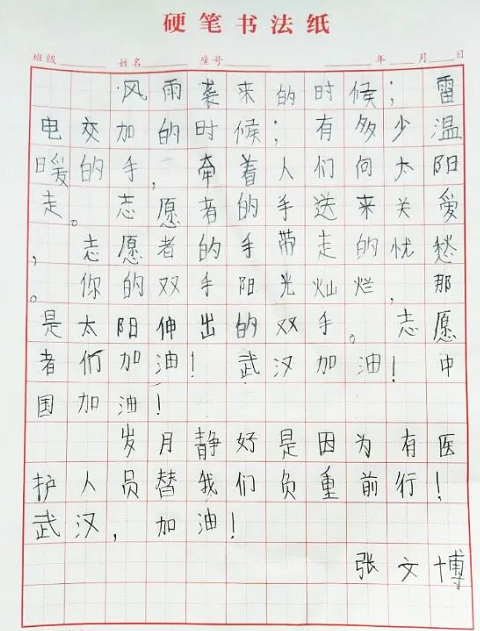 硬笔书法纸
班级 姓名 座号 年 月 日
风雨袭来的时候；雷
电交加的时候；有多少温
暖的手，牵着人们向太阳
走。志愿者的手送来关爱
，志愿者的手带走的忧愁
。你的双手阳光灿烂，那
是太阳伸出的双手。志愿
者们加油！武汉加油！中
国加油！
岁月静好是因为有医
护人员替我们负重前行！
武汉，加油！
张文博